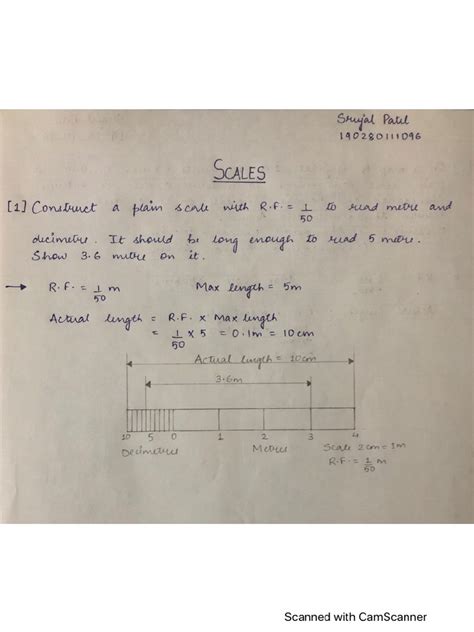 Srujal Patel
190280111096
SCALES
[1] Construct a plain scale with R.F. = 1/50 to read metre and
decimetre. It should be long enough to read 5 metre.
Show 3.6 metre on it.
→ R.F. = 1/50 m Max length = 5m
Actual length = R.F. x Max length
= 1/50 x 5 = 0.1m = 10cm
Actual length = 10cm
3.6m
10 5 0 1 2 3 4
Decimetres Metres Scale 2cm = 1m
R.F. = 1/50 m
Scanned with CamScanner